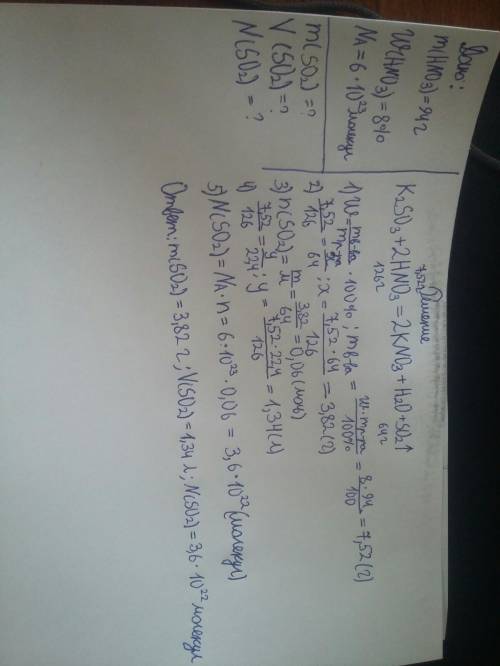 Дано:
m(HNO₃)=94г
W(HNO₃)=8%
NA=6·10²³молекул
m(SO₂)=?
V(SO₂)=?
N(SO₂)=?
Решение
7,52
K₂SO₃+2HNO₃=2KNO₃+H₂O+SO₂↑
126г 64г
1) W=mв-ва/mр-ра·100%; mв-ва=W·mр-ра/100%=8·94/100=7,52(г)
2) 7,52/126=x/64; x=7,52·64/126=3,82(г)
3) n(SO₂)=m/M=3,82/64=0,06(моль)
4) 7,52/126=y/22,4; y=7,52·22,4/126=1,34(л)
5) N(SO₂)=NA·n=6·10²³·0,06=3,6·10²²(молекул)
Ответ: m(SO₂)=3,82г; V(SO₂)=1,34л; N(SO₂)=3,6·10²²молекул